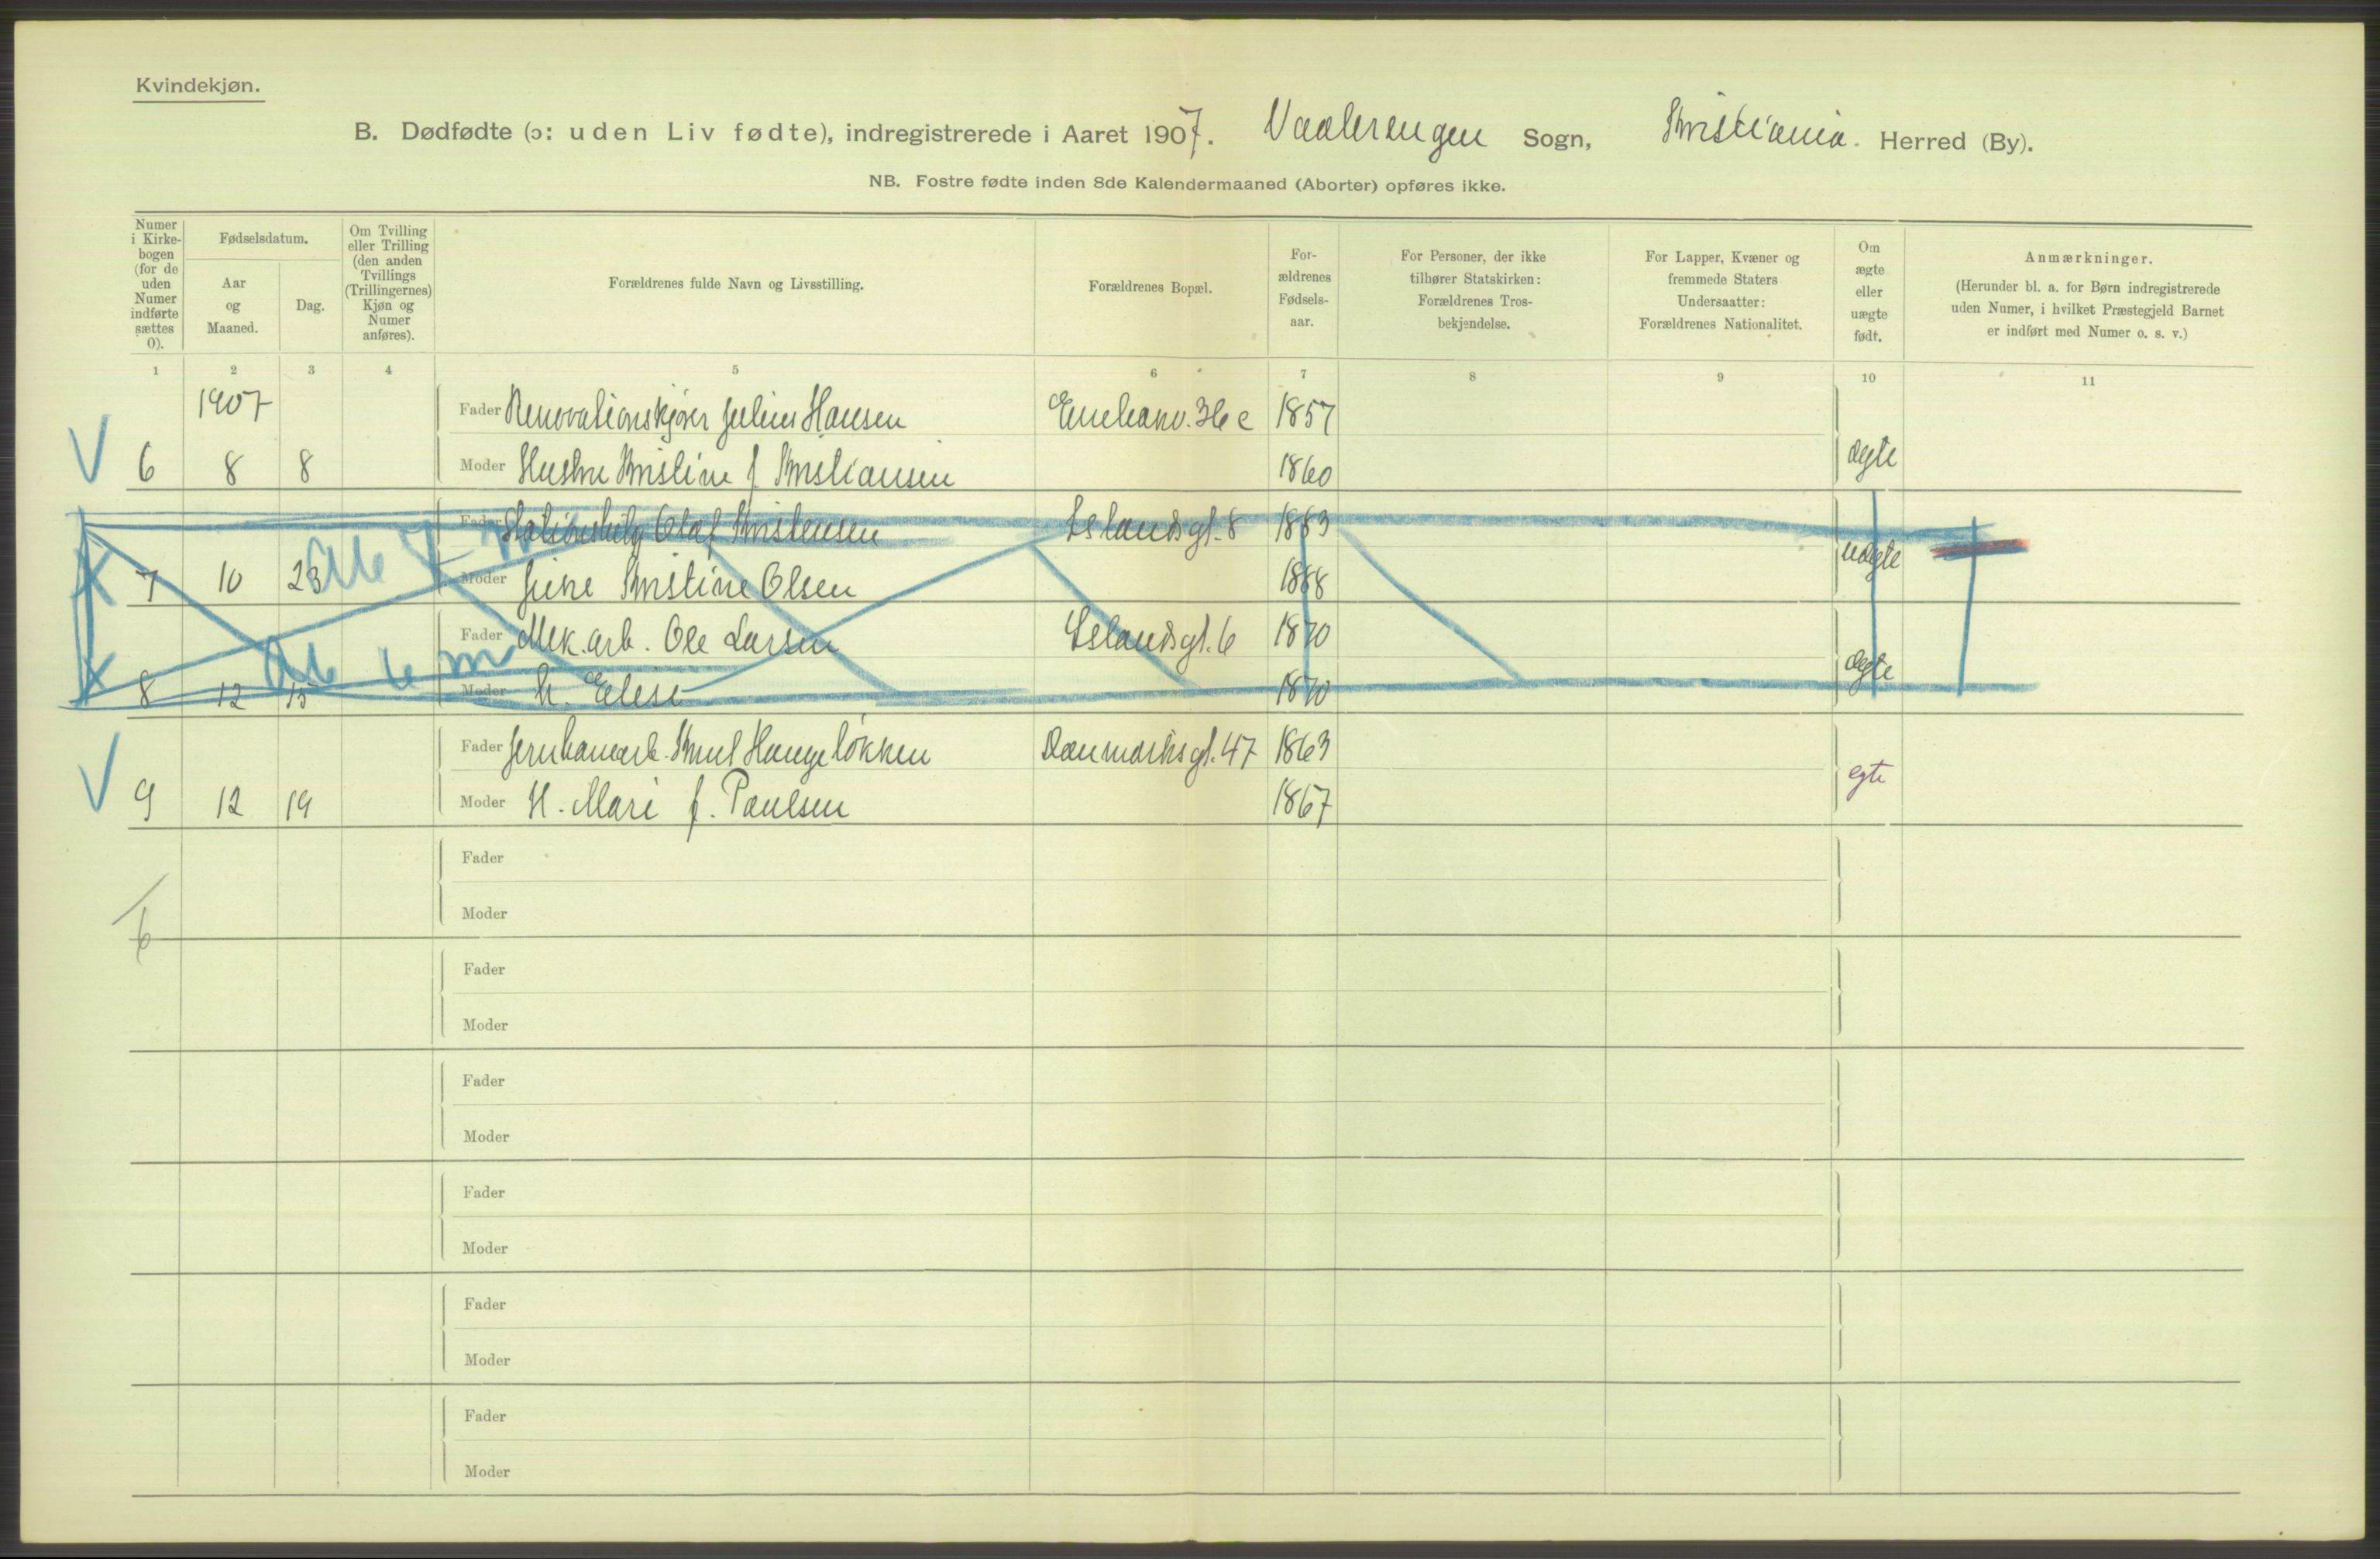 Kvindekjøn.
B. Dødfødte (ɔ: uden Liv fødte), indregistrerede i Aaret 1907. Vaalerengen Sogn, Kristiania. Herred (By).
NB. Fostre fødte inden 8de Kalendermaaned (Aborter) opføres ikke.
Numer i Kirkebogen (for de uden Numer indførte sættes 0).
Fødselsdatum.
Aar og Maaned.
Dag.
Om Tvilling eller Trilling (den anden Tvillings (Trillingernes) Kjøn og Numer anføres).
Forældrenes fulde Navn og Livsstilling.
Forældrenes Bopæl.
For-ældrenes Fødsels-aar.
For Personer, der ikke tilhører Statskirken: Forældrenes Tros-bekjendelse.
For Lapper, Kvæner og fremmede Staters Undersaatter: Forældrenes Nationalitet.
Om ægte eller uægte født.
Anmærkninger.
(Herunder bl. a. for Børn indregistrerede uden Numer, i hvilket Præstegjeld Barnet er indført med Numer o. s. v.)
1 2 3 4 5 6 7 8 9 10 11
1907 Fader Renovationskjører Julius Hansen 36 c 1857
V 6 8 8 Moder Hustru Kristine f Kristiansen 1860 ægte
Fader Olaf Kristensen Islandsgt. 8 1883
7 10 23 Moder Kristine Olsen 1888 uægte
Fader Mek. arb. Ole Larsen Islandsgt. 6 1870
8 12 15 Moder h. Elise 1870 ægte
Fader Jernbanearb. Knut Haugeløkken Danmarksgt. 47 1863
V 9 12 19 Moder H. Mari f. Paulsen 1867 egte
Fader
Moder
6
Fader
Moder
Fader
Moder
Fader
Moder
Fader
Moder
Fader
Moder